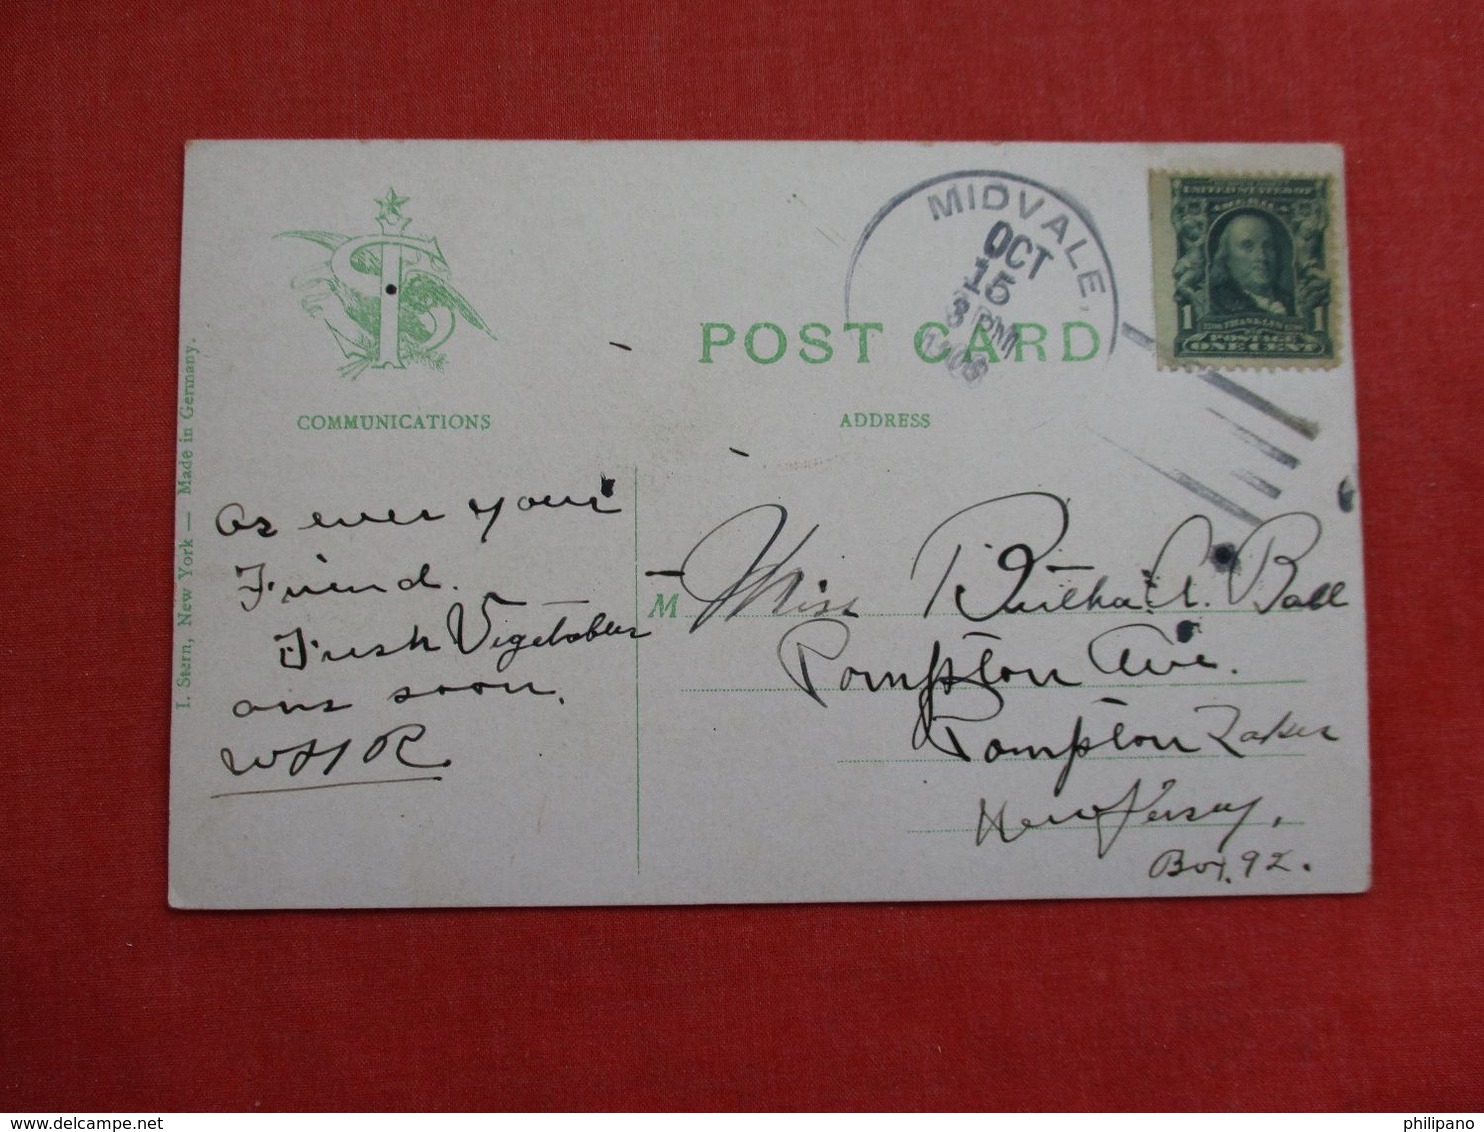 I. Stern, New York — Made in Germany.
COMMUNICATIONS
As ever your
Friend.
Fresh Vegetables
ans soon.
WHR
POST CARD
ADDRESS
MIDVALE,
OCT
15
3 PM
UNITED STATES OF
AMERICA
FRANKLIN
1 1
POSTAGE
ONE CENT
M Miss Bertha A. Ball
Pompton Ave.
Pompton Lakes
New Jersey,
Box 92.
delcampe.net
philipano